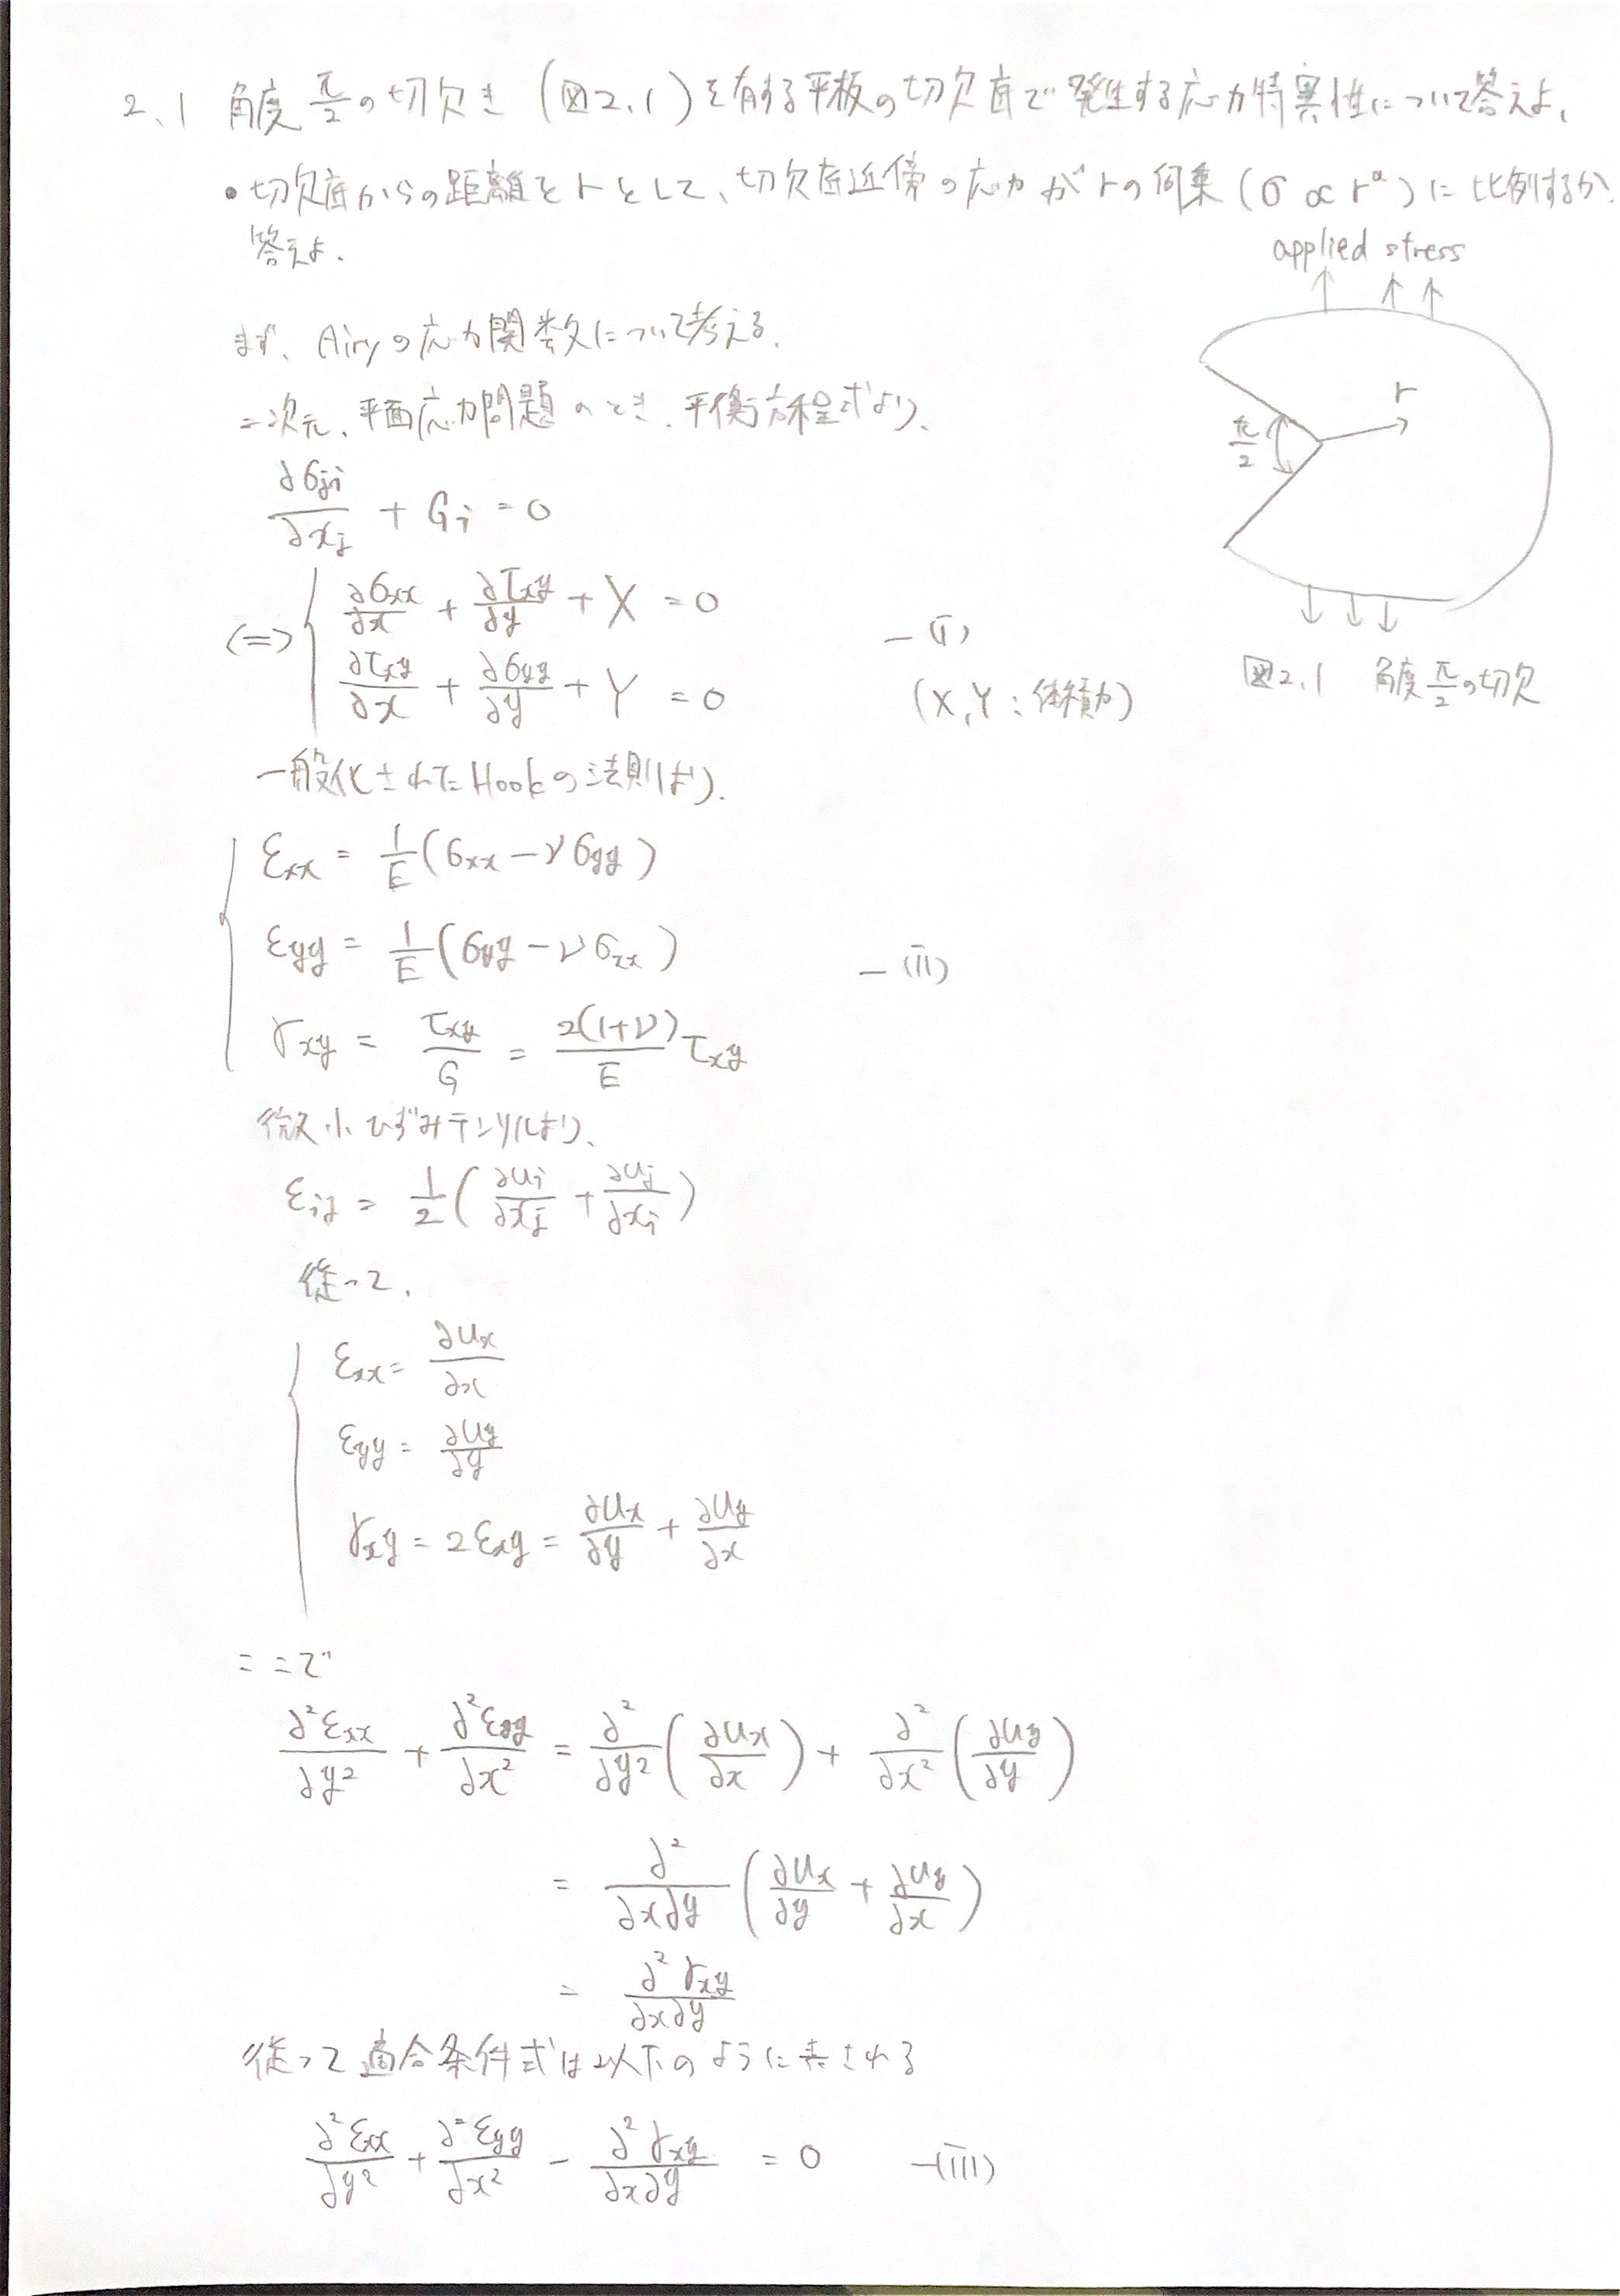 2.1 角度 π/2 の切欠き (図2.1) を有する平板の切欠底で発生する応力特異性について答えよ.
• 切欠底からの距離をrとして、切欠底近傍の応力がrの何乗 (σ ∝ r^α) に比例するか.
答えよ.
applied stress
まず、Airyの応力関数について考える.
二次元、平面応力問題のとき、平衡方程式より、
r
π/2
∂σji/∂xj + Gi = 0
∂σxx/∂x + ∂τxy/∂y + X = 0
⇔ — (i)
∂τxy/∂x + ∂σyy/∂y + Y = 0
(X, Y : 体積力)
図2.1 角度 π/2 の切欠
一般化されたHookの法則より.
εxx = 1/E (σxx − νσyy)
εyy = 1/E (σyy − νσxx) — (ii)
γxy = τxy/G = 2(1+ν)/E τxy
微小ひずみテンソルより、
εij = 1/2 (∂ui/∂xj + ∂uj/∂xi)
従って.
εxx = ∂ux/∂x
εyy = ∂uy/∂y
γxy = 2εxy = ∂ux/∂y + ∂uy/∂x
ここで
∂²εxx/∂y² + ∂²εyy/∂x² = ∂²/∂y² (∂ux/∂x) + ∂²/∂x² (∂uy/∂y)
= ∂²/∂x∂y (∂ux/∂y + ∂uy/∂x)
= ∂²γxy/∂x∂y
従って適合条件式は以下のように表される
∂²εxx/∂y² + ∂²εyy/∂x² − ∂²γxy/∂x∂y = 0 — (iii)